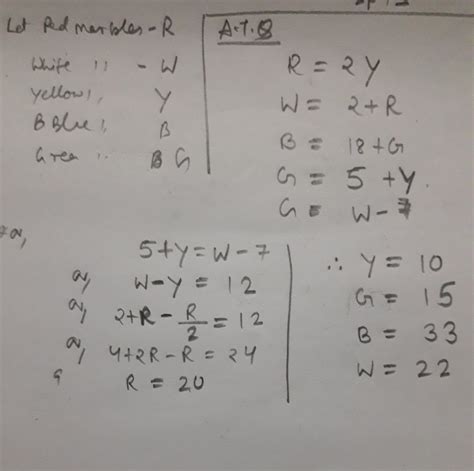 Let Red marbles - R
White ,, - W
Yellow ,, Y
B Blue ,, B
Green ,, B G
A.T.Q
R = 2Y
W = 2+R
B = 18+G
G = 5 + Y.
G = W - 7
5+Y = W - 7
W - Y = 12
2+R - R/2 = 12
4+2R - R = 24
R = 20
∴ Y = 10
G = 15
B = 33
W = 22